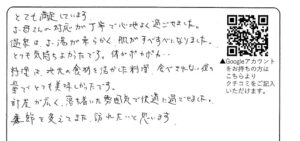 とても満足しています
お母さんの対応が丁寧で心地よく過ごせました。
温泉は、お湯が柔らかく肌がすべすべになりました。
とても気持ちよかったです。体がポカポカ。
料理は、地元の食材を活かした料理 食べきれない程の
量でとても美味しかったです。
部屋が広く、落ち着いた雰囲気で快適に過ごせました。
季節を変えてまた訪れたいと思います。
▲Googleアカウント
をお持ちの方は
こちらより
クチコミをご記入
いただけます。